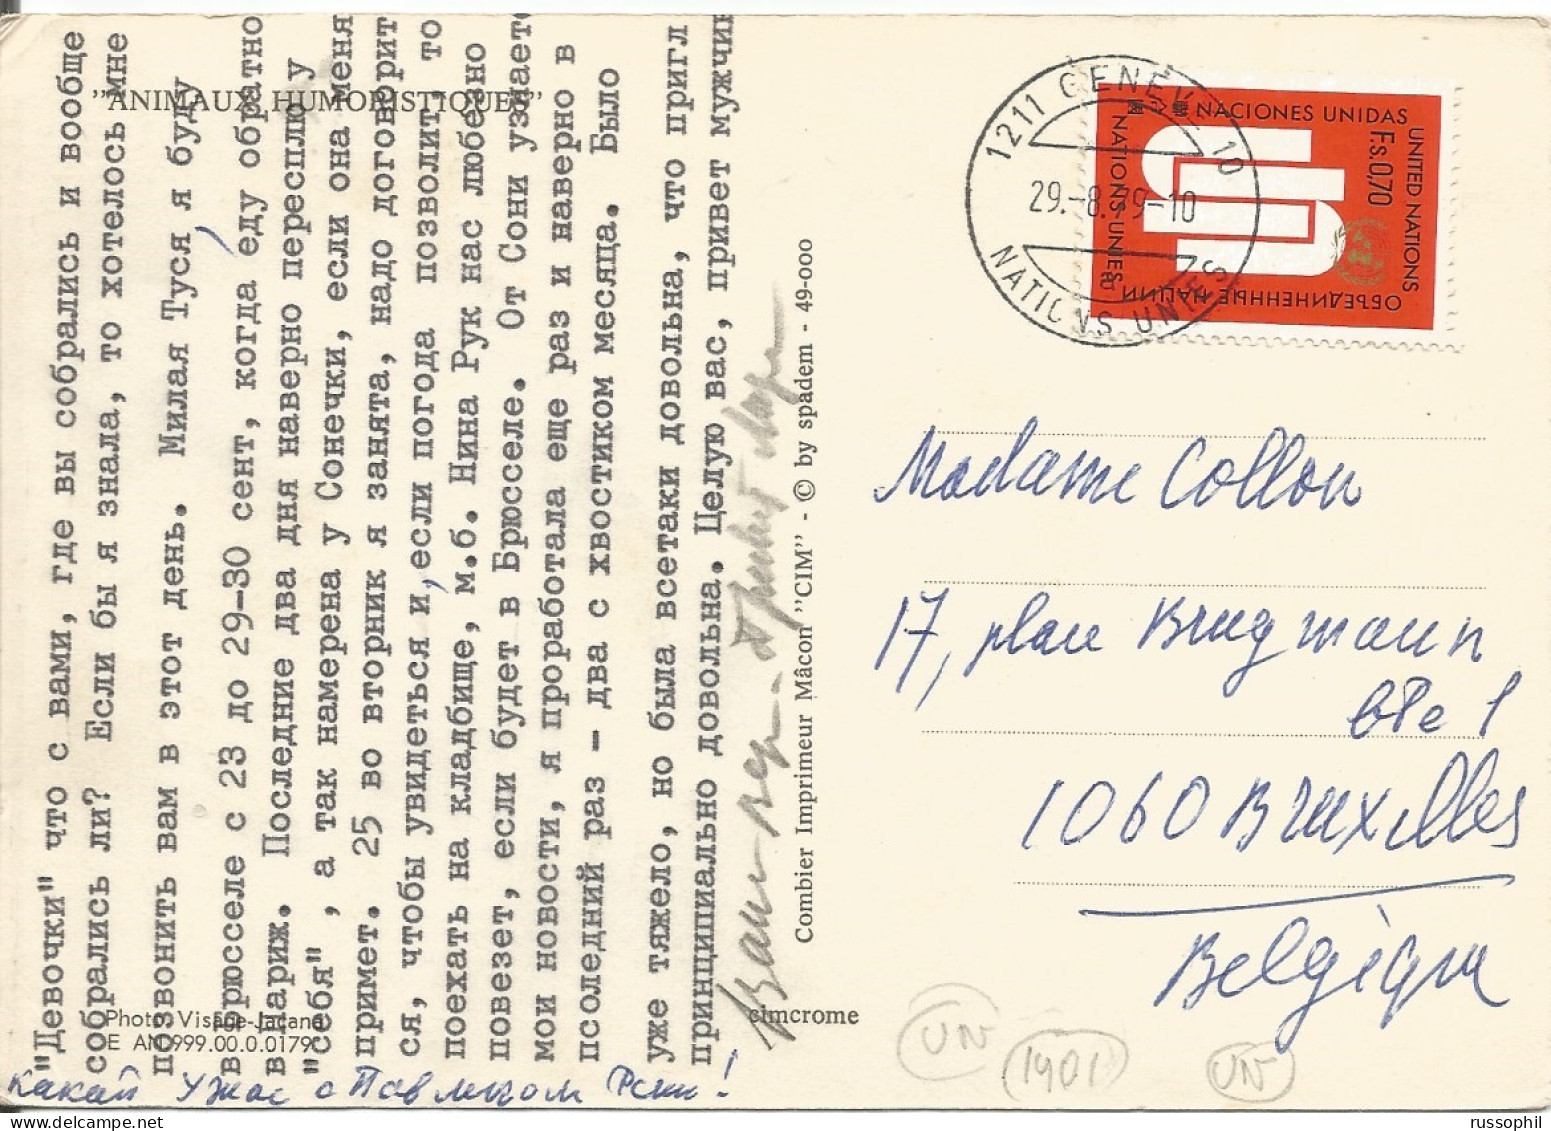 "Девочки" что с вами, где вы собрались и вообще
собрались ли? Если бы я знала, то хотелось мне
позвонить вам в этот день. Милая Туся, я буду
в Брюсселе с 23 до 29-30 сент, когда еду обратно
в Париж. Последние два дня наверно пересплю у
"себя", а так намерена у Сонечки, если она меня
примет. 25 во вторник я занята, надо договорит
ся, чтобы увидеться и, если погода позволит, то
поехать на кладбище, м.б. Нина Рук нас любезно
повезет, если будет в Брюсселе. От Сони узнаете
мои новости, я проработала еще раз и наверно в
псоледний раз - два с хвостиком месяца. Было
уже тяжело, но была всетаки довольна, что пригл
принципиально довольна. Целую вас, привет мужчин
какай ужас с
"ANIMAUX HUMORISTIQUES"
Photo Visage-Jacana
E AN 999.00.0.0179
cimcrome
Combier Imprimeur Mâcon "CIM" - © by spadem - 49-000
1211 GENÈVE 10
29.-8.79-10
NATIONS UNIES
NACIONES UNIDAS
UNITED NATIONS
F.s.0,70
ОБЪЕДИНЕННЫЕ НАЦИИ
NATIONS UNIES
Madame Collon
17, place Brugmann
bte 1
1060 Bruxelles
Belgique
UN
1901
UN
russophil